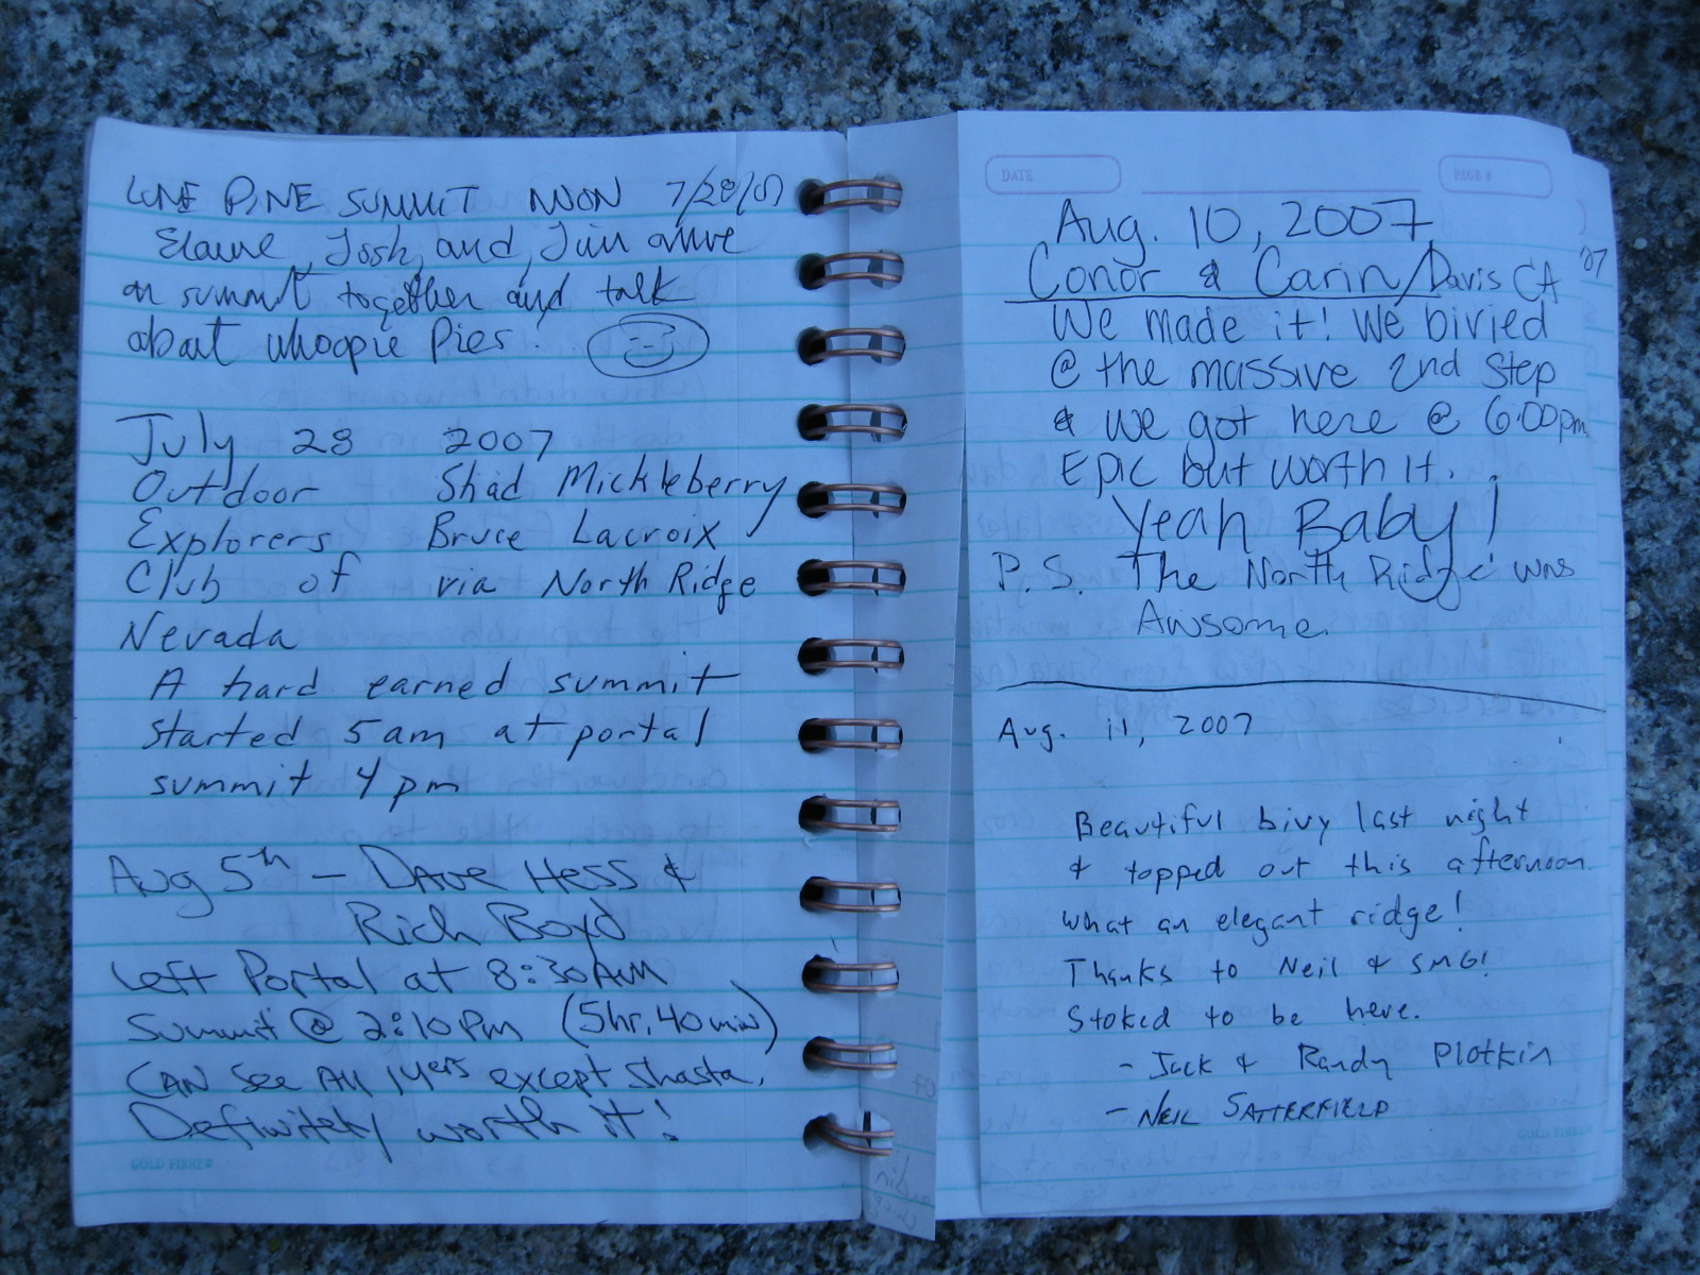 LONE PINE SUMMIT NOON 7/28/07
Elaine, Josh, and Jim arrive
on summit together and talk
about whoopie Pies.
July 28 2007
Outdoor Shad Mickleberry
Explorers Bruce Lacroix
Club of via North Ridge
Nevada
A hard earned summit
started 5 am at portal
summit 4 pm
Aug 5th - Dave Hess &
Rich Boyd
Left Portal at 8:30 AM
Summit @ 2:10 Pm (5hr, 40 min)
CAN See All 14ers except Shasta,
Definitely worth it!
GOLD FIBRE
DATE PAGE #
Aug. 10, 2007
Conor & Carin/Davis CA
We made it! We bivied
@ the massive 2nd Step
& we got here @ 6:00pm
Epic but worth it.
Yeah Baby!
P.S. The North Ridge was
Awsome.
Aug. 11, 2007
Beautiful bivy last night
& topped out this afternoon.
What an elegant ridge!
Thanks to Neil & SMG!
Stoked to be here.
- Jack & Randy Plotkin
- NEIL SATTERFIELD
'07